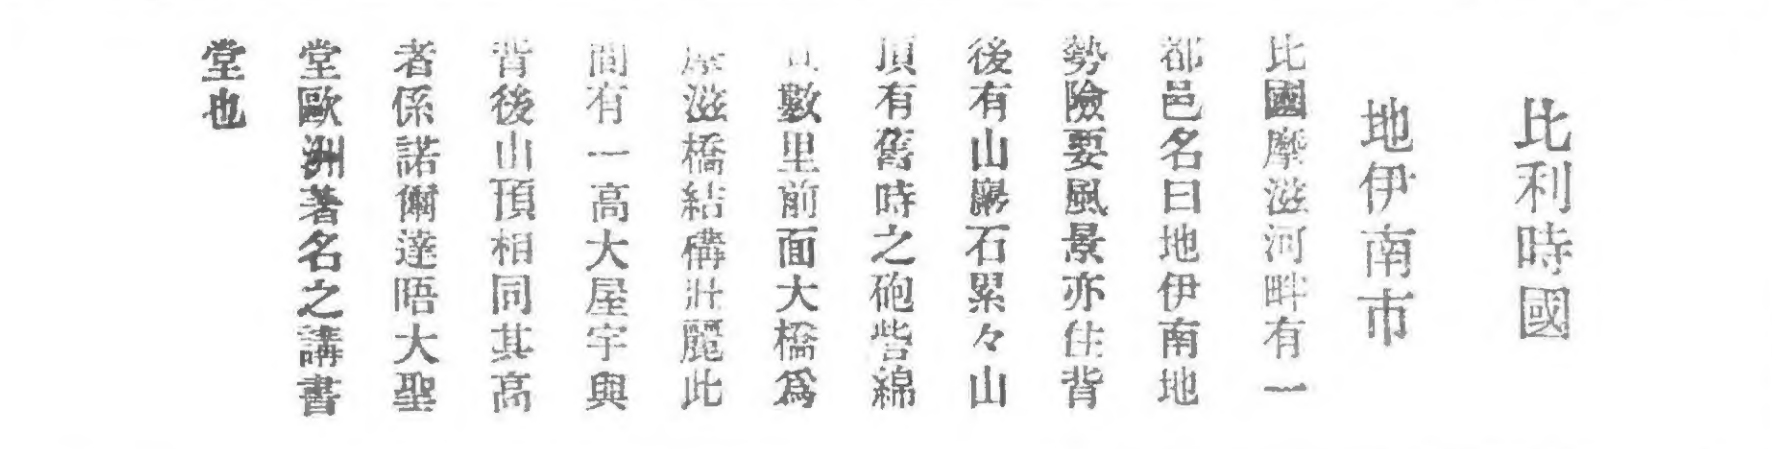 比利時國
地伊南市
比國摩滋河畔有一
都邑名曰地伊南地
勢險要風景亦佳背
後有山巖石累々山
頂有舊時之砲砦綿
數里前面大橋爲
摩滋橋結構壯麗此
間有一高大屋宇與
背後山頂相同其高
者係諾爾達唔大聖
堂歐洲著名之講書
堂也